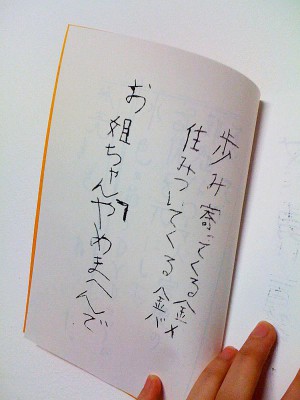 歩み寄ってくる金メ
住みついてくる金バ
お姐ちゃんやめまへんで